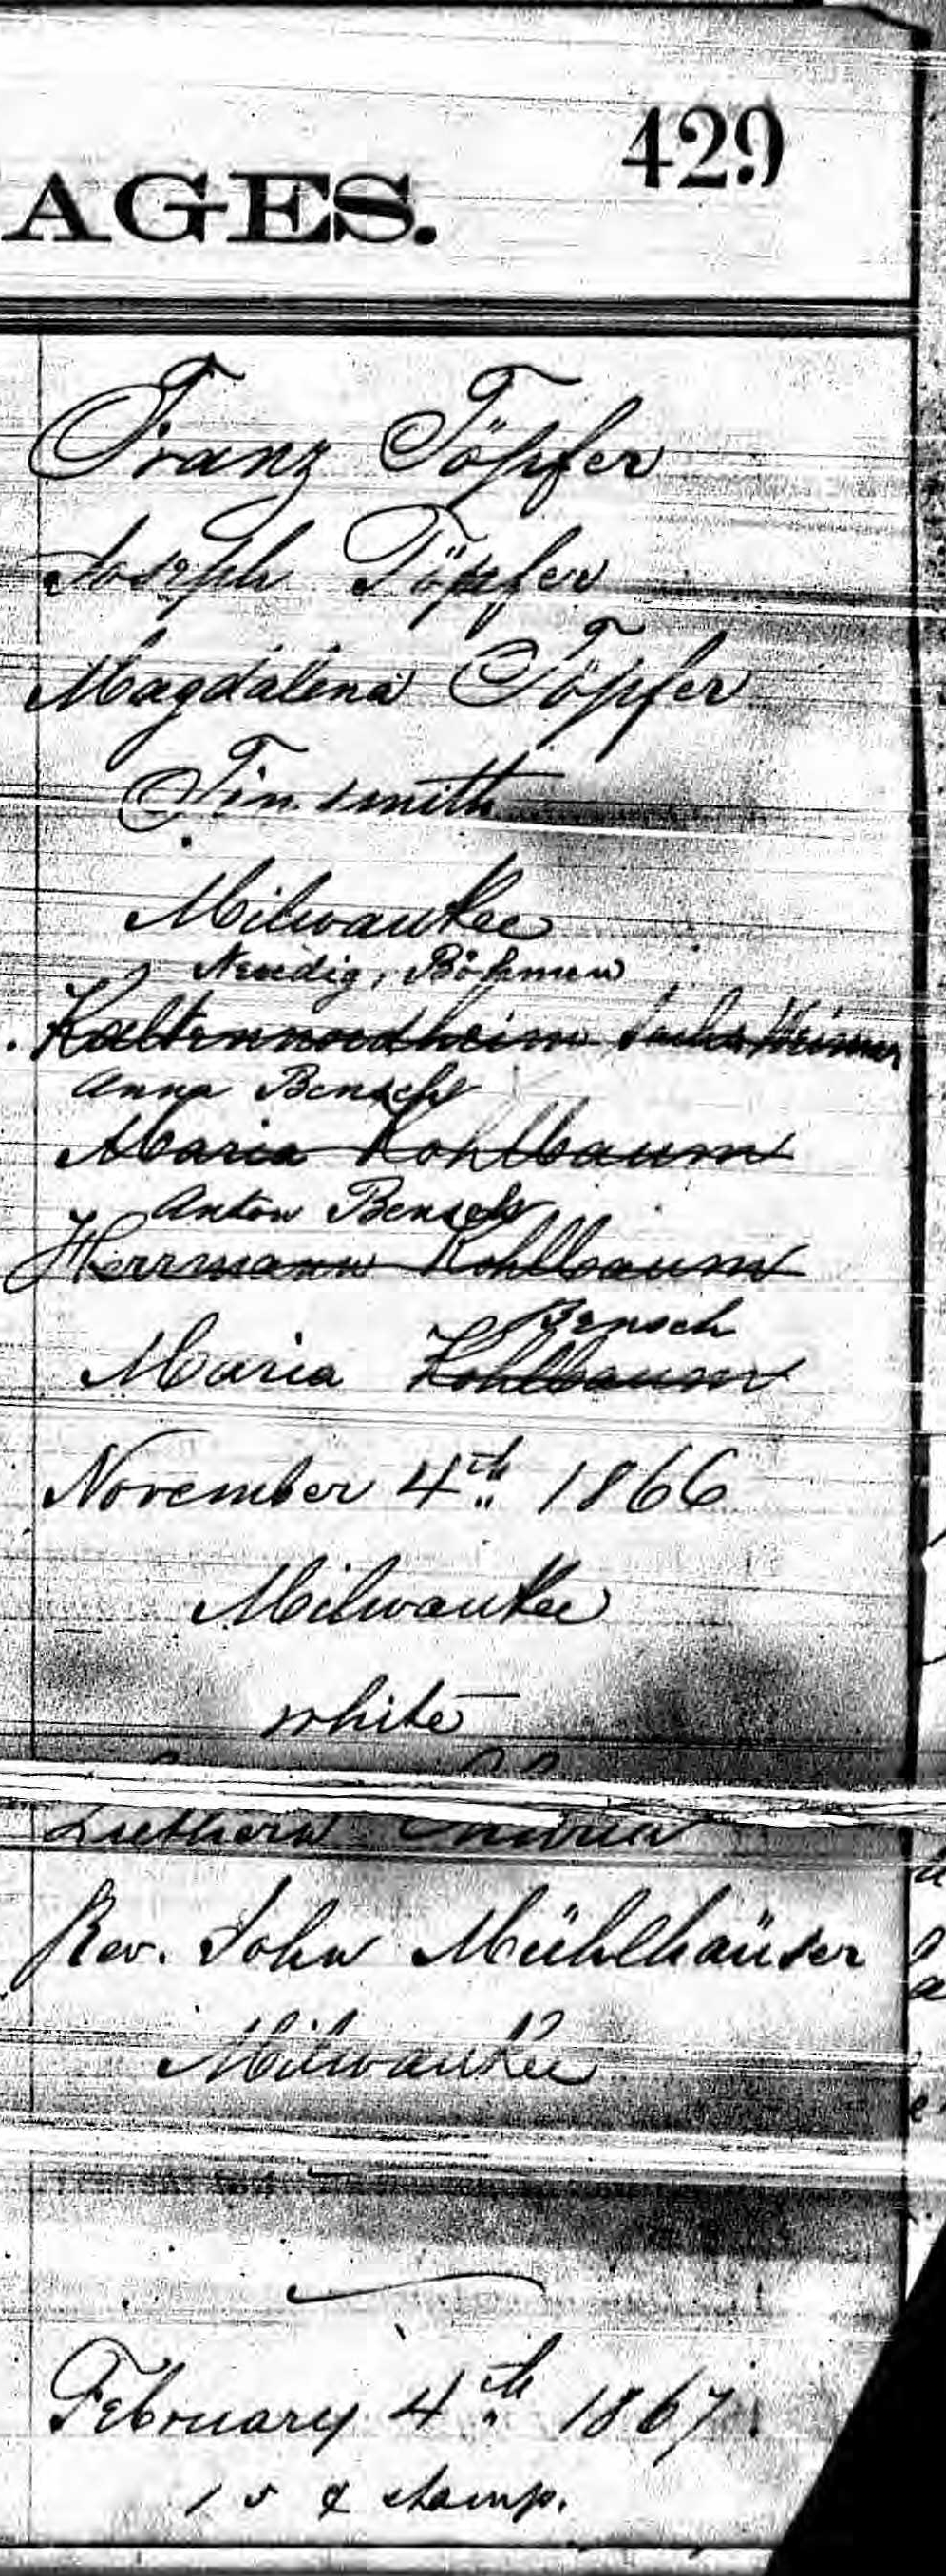 429
AGES.
Franz Töpfer
Joseph Töpfer
Magdalena Töpfer
Tinsmith
Milwaukee
Neudig, Böhmen
Kaltennordheim Sachs Weimar
Anna Bensch
Maria Kohlbaum
Anton Bensch
Herrmann Kohlbaum
Bensch
Maria Kohlbaum
November 4th 1866
Milwaukee
white
Luthern
Rev. John Mühlhäuser
Milwaukee
February 4th 1867
stamp.